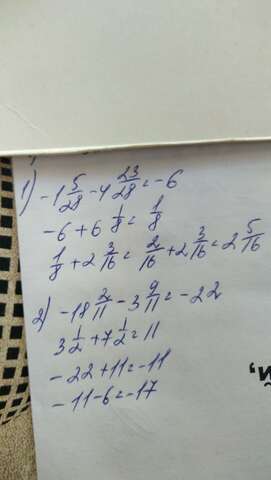 1) -1 5/28 - 4 23/28 = -6
-6 + 6 1/8 = 1/8
1/8 + 2 3/16 = 2/16 + 2 3/16 = 2 5/16
2) -18 2/11 - 3 9/11 = -22
3 1/2 + 7 1/2 = 11
-22 + 11 = -11
-11 - 6 = -17